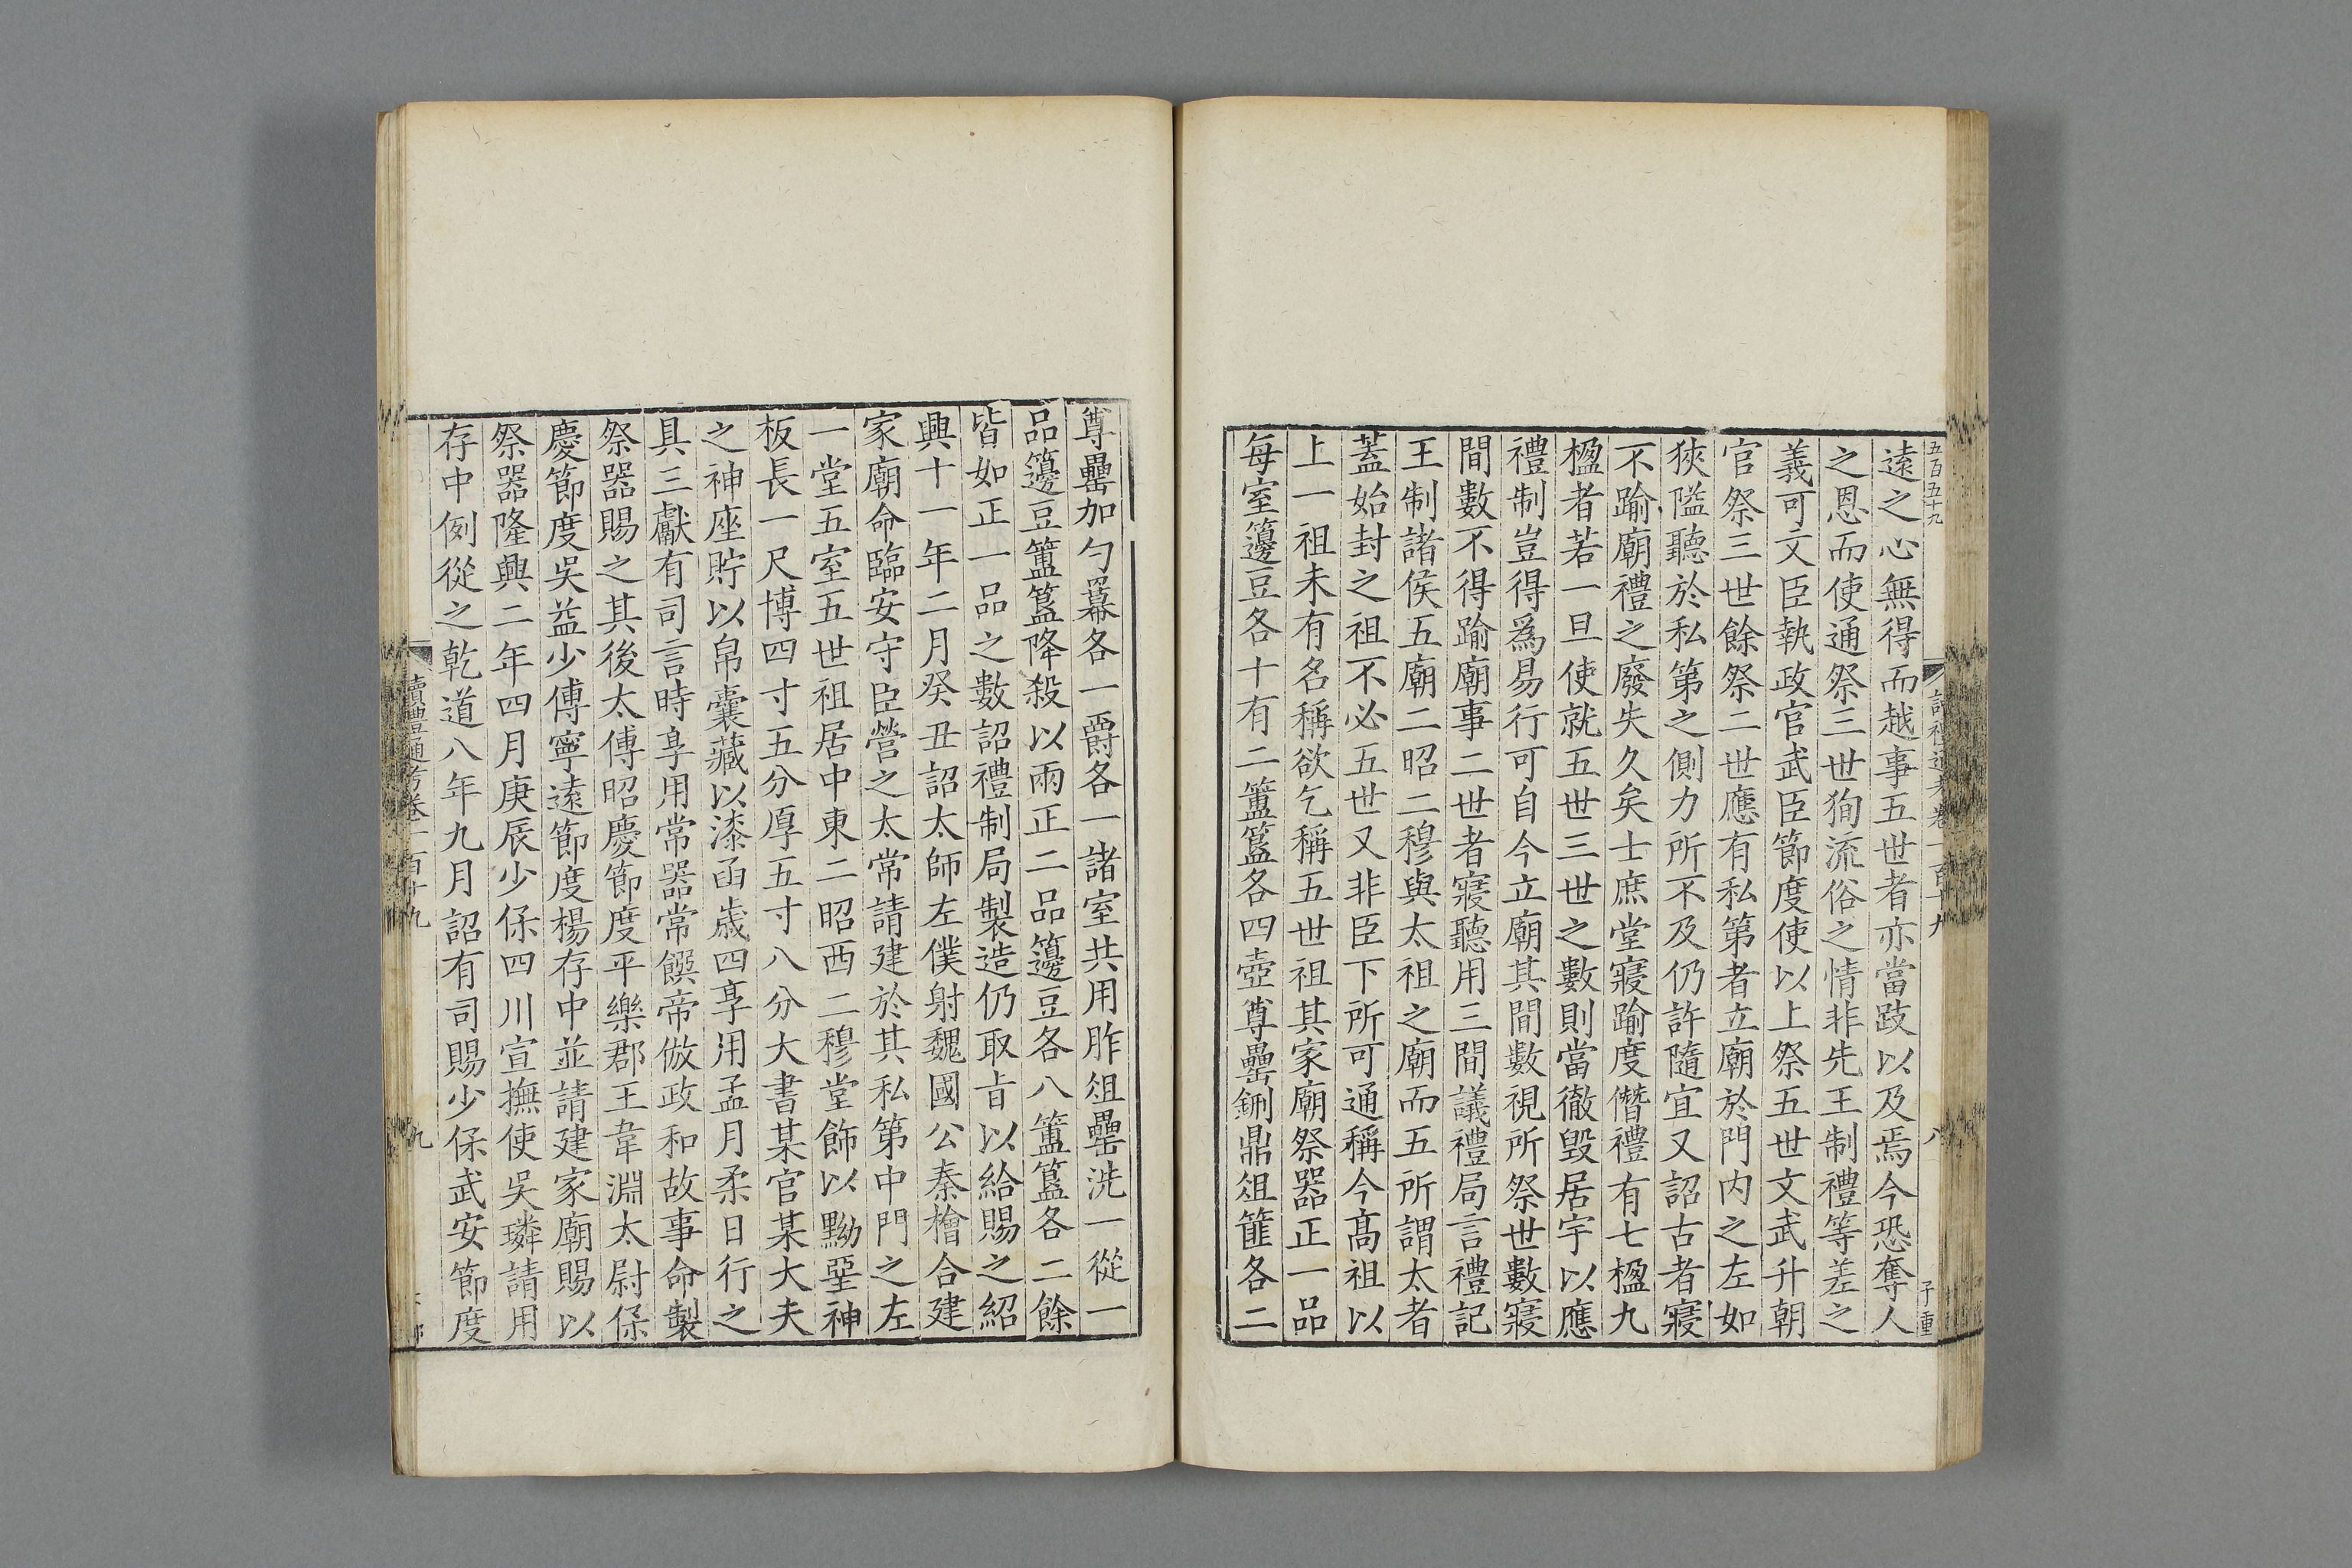 五百五十九
讀禮通考卷一百十九
八
子重
遠之心無得而越事五世者亦當跂以及焉今恐奪人
之恩而使通祭三世徇流俗之情非先王制禮等差之
義可文臣執政官武臣節度使以上祭五世文武升朝
官祭三世餘祭二世應有私第者立廟於門内之左如
狹隘聽於私第之側力所不及仍許隨宜又詔古者寢
不踰廟禮之廢失久矣士庶堂寢踰度僭禮有七楹九
楹者若一旦使就五世三世之數則當徹毀居宇以應
禮制豈得爲易行可自今立廟其間數視所祭世數寢
間數不得踰廟事二世者寢聽用三間議禮局言禮記
王制諸侯五廟二昭二穆與太祖之廟而五所謂太者
蓋始封之祖不必五世又非臣下所可通稱今髙祖以
上一祖未有名稱欲乞稱五世祖其家廟祭器正一品
每室籩豆各十有二簠簋各四壺尊罍鉶鼎俎篚各二
尊罍加勺冪各一爵各一諸室共用胙俎罍洗一從一
品籩豆簠簋降殺以兩正二品籩豆各八簠簋各二餘
皆如正一品之數詔禮制局製造仍取㫖以給賜之紹
興十一年二月癸丑詔太師左僕射魏國公秦檜合建
家廟命臨安守臣營之太常請建於其私第中門之左
一堂五室五世祖居中東二昭西二穆堂飾以黝堊神
板長一尺博四寸五分厚五寸八分大書某官某大夫
之神座貯以帛囊藏以漆函歲四享用孟月柔日行之
具三獻有司言時享用常器常饌帝倣政和故事命製
祭器賜之其後太傅昭慶節度平樂郡王韋淵太尉保
慶節度吳益少傅寧遠節度楊存中並請建家廟賜以
祭器隆興二年四月庚辰少保四川宣撫使吳璘請用
存中例從之乾道八年九月詔有司賜少保武安節度
讀禮通考卷一百十九
九